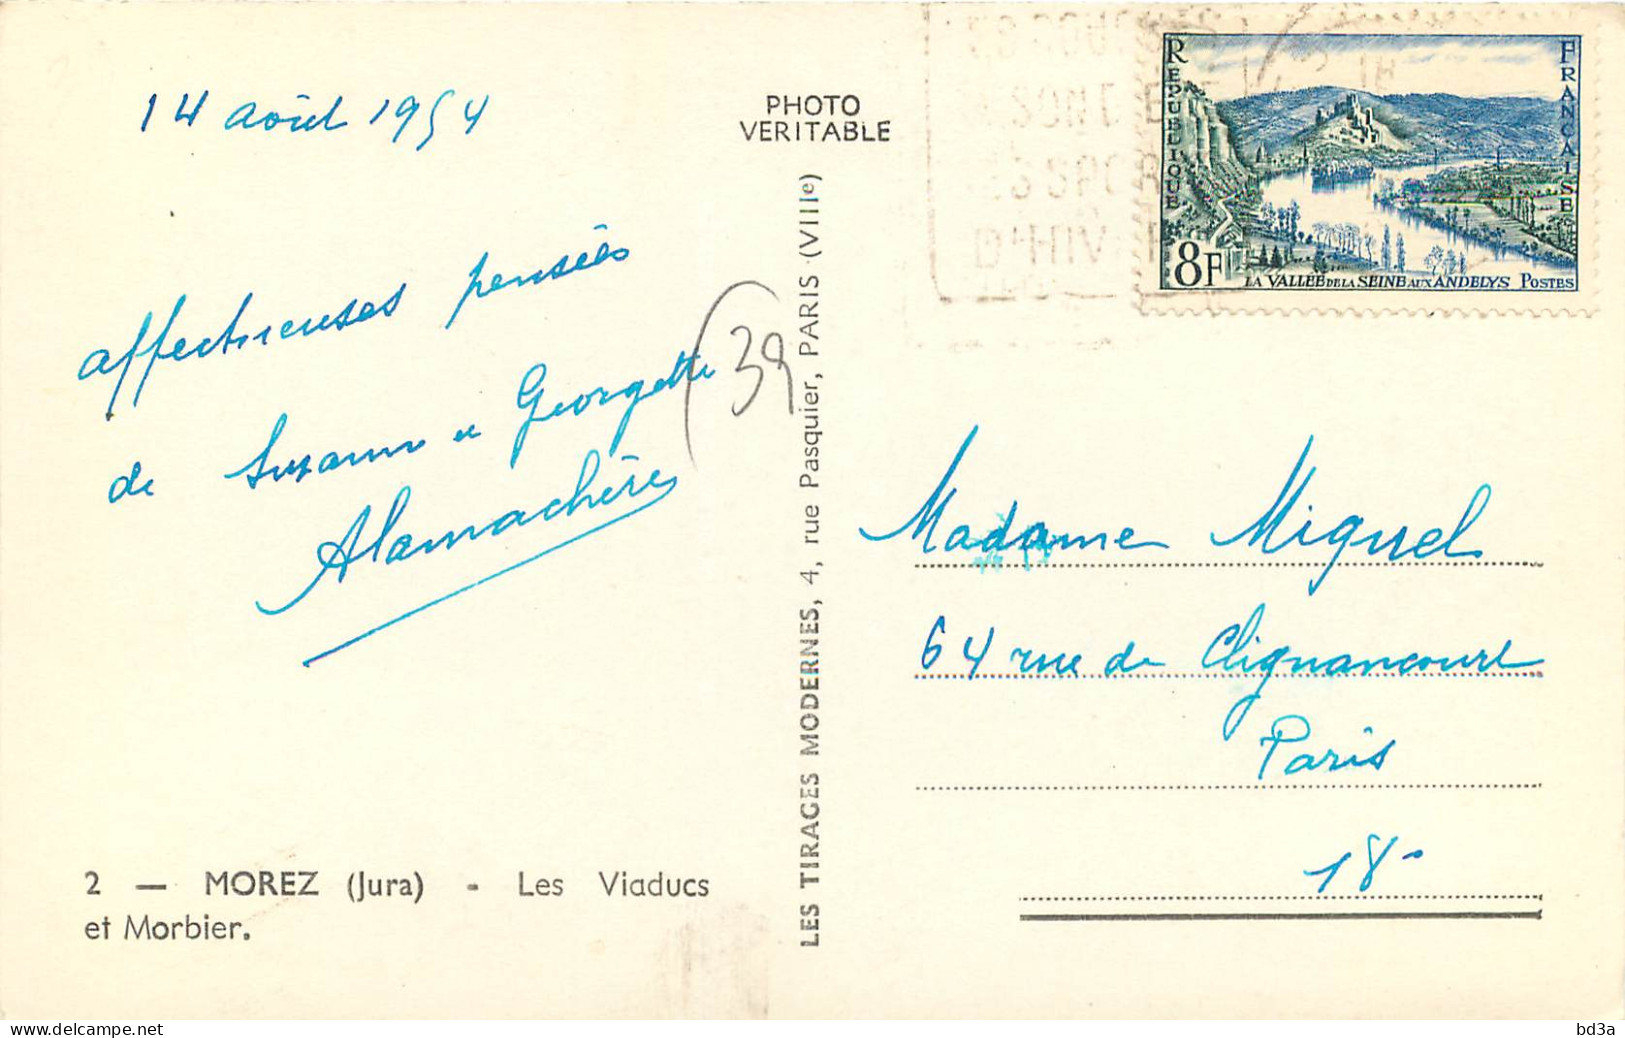 14 août 1954
affectueuses pensées
de Suzanne et Georgette
Alamachère
(39
2 — MOREZ (Jura) - Les Viaducs
et Morbier.
PHOTO
VERITABLE
LES TIRAGES MODERNES, 4, rue Pasquier, PARIS (VIIIe)
REPUBLIQUE FRANÇAISE
8F
LA VALLÉE DE LA SEINE AUX ANDELYS POSTES
Madame Miguel
64 rue de Clignancourt
Paris
18-
www.delcampe.net
bd3a